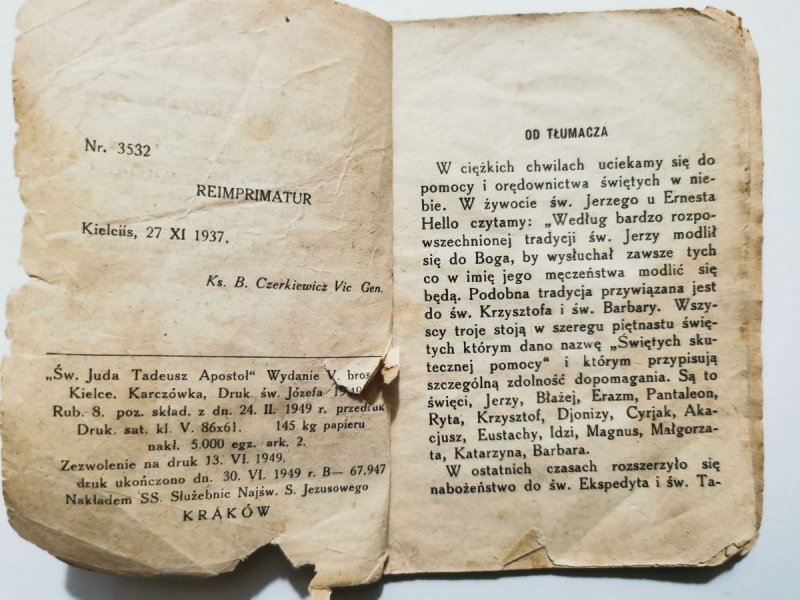 Nr. 3532
REIMPRIMATUR
Kielciis, 27 XI 1937.
Ks. B. Czerkiewicz Vic Gen.
„Św. Juda Tadeusz Apostoł" Wydanie V. bros
Kielce. Karczówka, Druk. św. Józefa 1949
Rub. 8. poz. skład. z dn. 24. II. 1949 r. przedruk
Druk. sat. kl. V. 86x61. 145 kg papieru
nakł. 5.000 egz. ark. 2.
Zezwolenie na druk 13. VI. 1949.
druk ukończono dn. 30. VI. 1949 r. B— 67.947
Nakładem SS. Służebnic Najśw. S. Jezusowego
KRAKÓW
OD TŁUMACZA
W ciężkich chwilach uciekamy się do
pomocy i orędownictwa świętych w nie-
bie. W żywocie św. Jerzego u Ernesta
Hello czytamy: „Według bardzo rozpo-
wszechnionej tradycji św. Jerzy modlił
się do Boga, by wysłuchał zawsze tych
co w imię jego męczeństwa modlić się
będą. Podobna tradycja przywiązana jest
do św. Krzysztofa i św. Barbary. Wszy-
scy troje stoją w szeregu piętnastu świę-
tych którym dano nazwę „Świętych sku-
tecznej pomocy" i którym przypisują
szczególną zdolność dopomagania. Są to
święci, Jerzy, Błażej, Erazm, Pantaleon,
Ryta, Krzysztof, Djonizy, Cyrjak, Aka-
cjusz, Eustachy, Idzi, Magnus, Małgorza-
ta, Katarzyna, Barbara.
W ostatnich czasach rozszerzyło się
nabożeństwo do św. Ekspedyta i św. Ta-